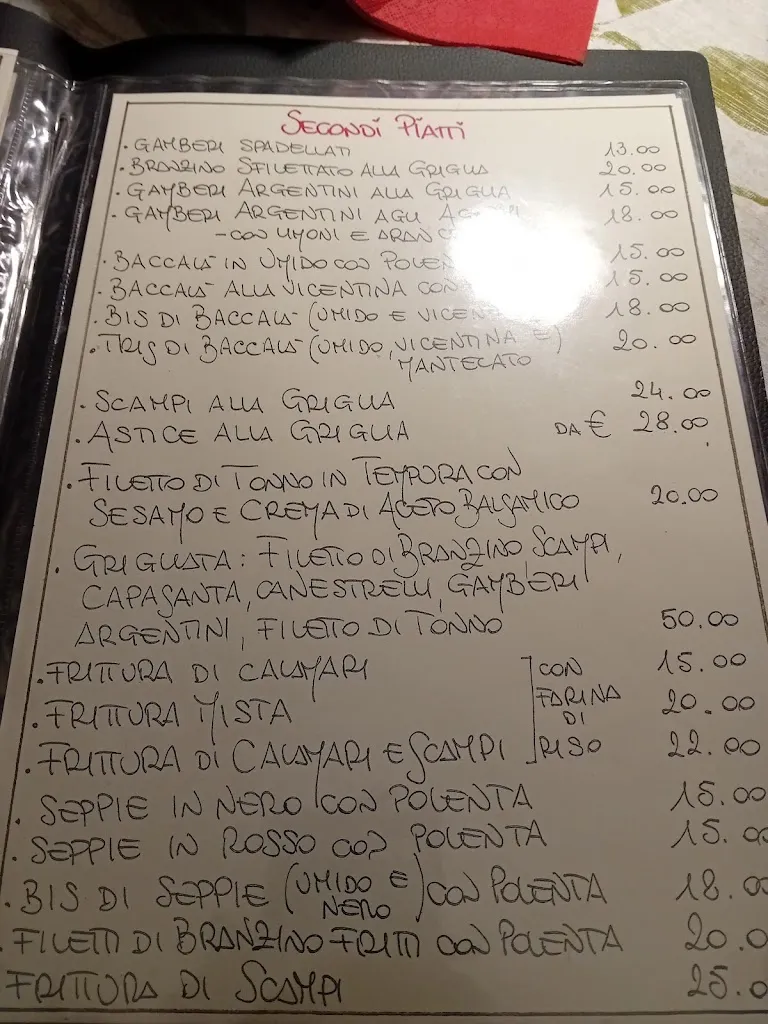 SECONDI PIATTI
• GAMBERI SPADELLATI 13.00
• BRANZINO SFILETTATO ALLA GRIGLIA 20.00
• GAMBERI ARGENTINI ALLA GRIGLIA 15.00
• GAMBERI ARGENTINI AGLI 18.00
- CON LIMONI E
• BACCALA' IN UMIDO CON 15.00
• BACCALA' ALLA VICENTINA CON 15.00
• BIS DI BACCALA' (UMIDO E 18.00
• TRIS DI BACCALA' (UMIDO, VICENTINA E) 20.00
MANTECATO
• SCAMPI ALLA GRIGLIA 24.00
• ASTICE ALLA GRIGLIA DA € 28.00
• FILETTO DI TONNO IN TEMPURA CON
SESAMO E CREMA DI ACETO BALSAMICO 20.00
• GRIGLIATA: FILETTO DI BRANZINO, SCAMPI,
CAPASANTA, CANESTRELLI, GAMBERI
ARGENTINI, FILETTO DI TONNO 50.00
• FRITTURA DI CALAMARI CON 15.00
• FRITTURA MISTA FARINA DI 20.00
• FRITTURA DI CALAMARI E SCAMPI RISO 22.00
• SEPPIE IN NERO CON POLENTA 15.00
• SEPPIE IN ROSSO CON POLENTA 15.00
• BIS DI SEPPIE (UMIDO E NERO) CON POLENTA 18.00
• FILETTI DI BRANZINO FRITTI CON POLENTA 20.0
FRITTURA DI SCAMPI 25.0